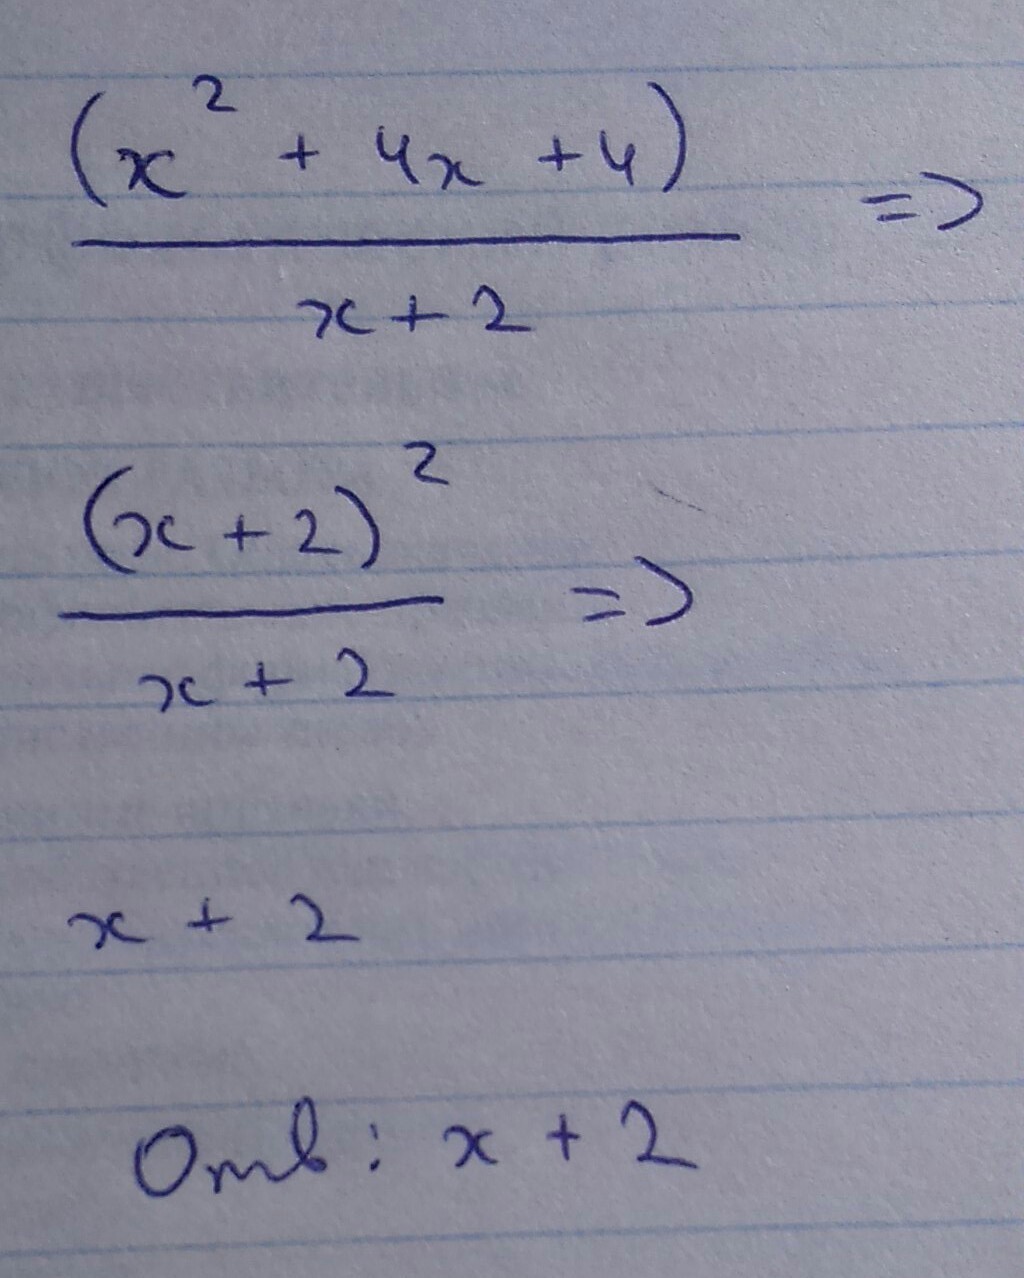 (x² + 4x + 4)
x + 2
=>
(x + 2)²
x + 2
=>
x + 2
Отв: x + 2